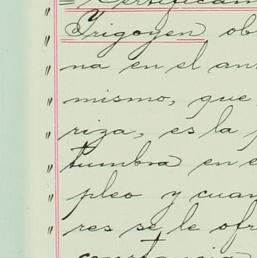 = Certifican
" Yrigoyen ob
" na en el an
" mismo, que
" riza, es la
" tumbra en e
" pleo y cuan
" res se le ofr
constancia